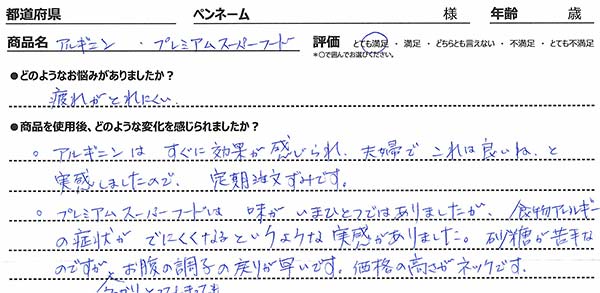 都道府県 ペンネーム 様 年齢 歳
商品名 アルギニン ・ プレミアムスーパーフード 評価 とても満足 ・ 満足 ・ どちらとも言えない ・ 不満足 ・ とても不満足
*○で囲んでお選びください。
●どのようなお悩みがありましたか?
疲れがとれにくい
●商品を使用後、どのような変化を感じられましたか?
。アルギニンは すぐに効果が感じられ、夫婦で これは良いね、と
実感しましたので、 定期注文ずみです。
。プレミアムスーパーフードは 味が いまひとつではありましたが、食物アレルギー
の症状が でにくくなるというような実感がありました。砂糖が苦手な
のですが、お腹の調子の戻りが早いです。価格の高さがネックです。
うっかりとってしまっても